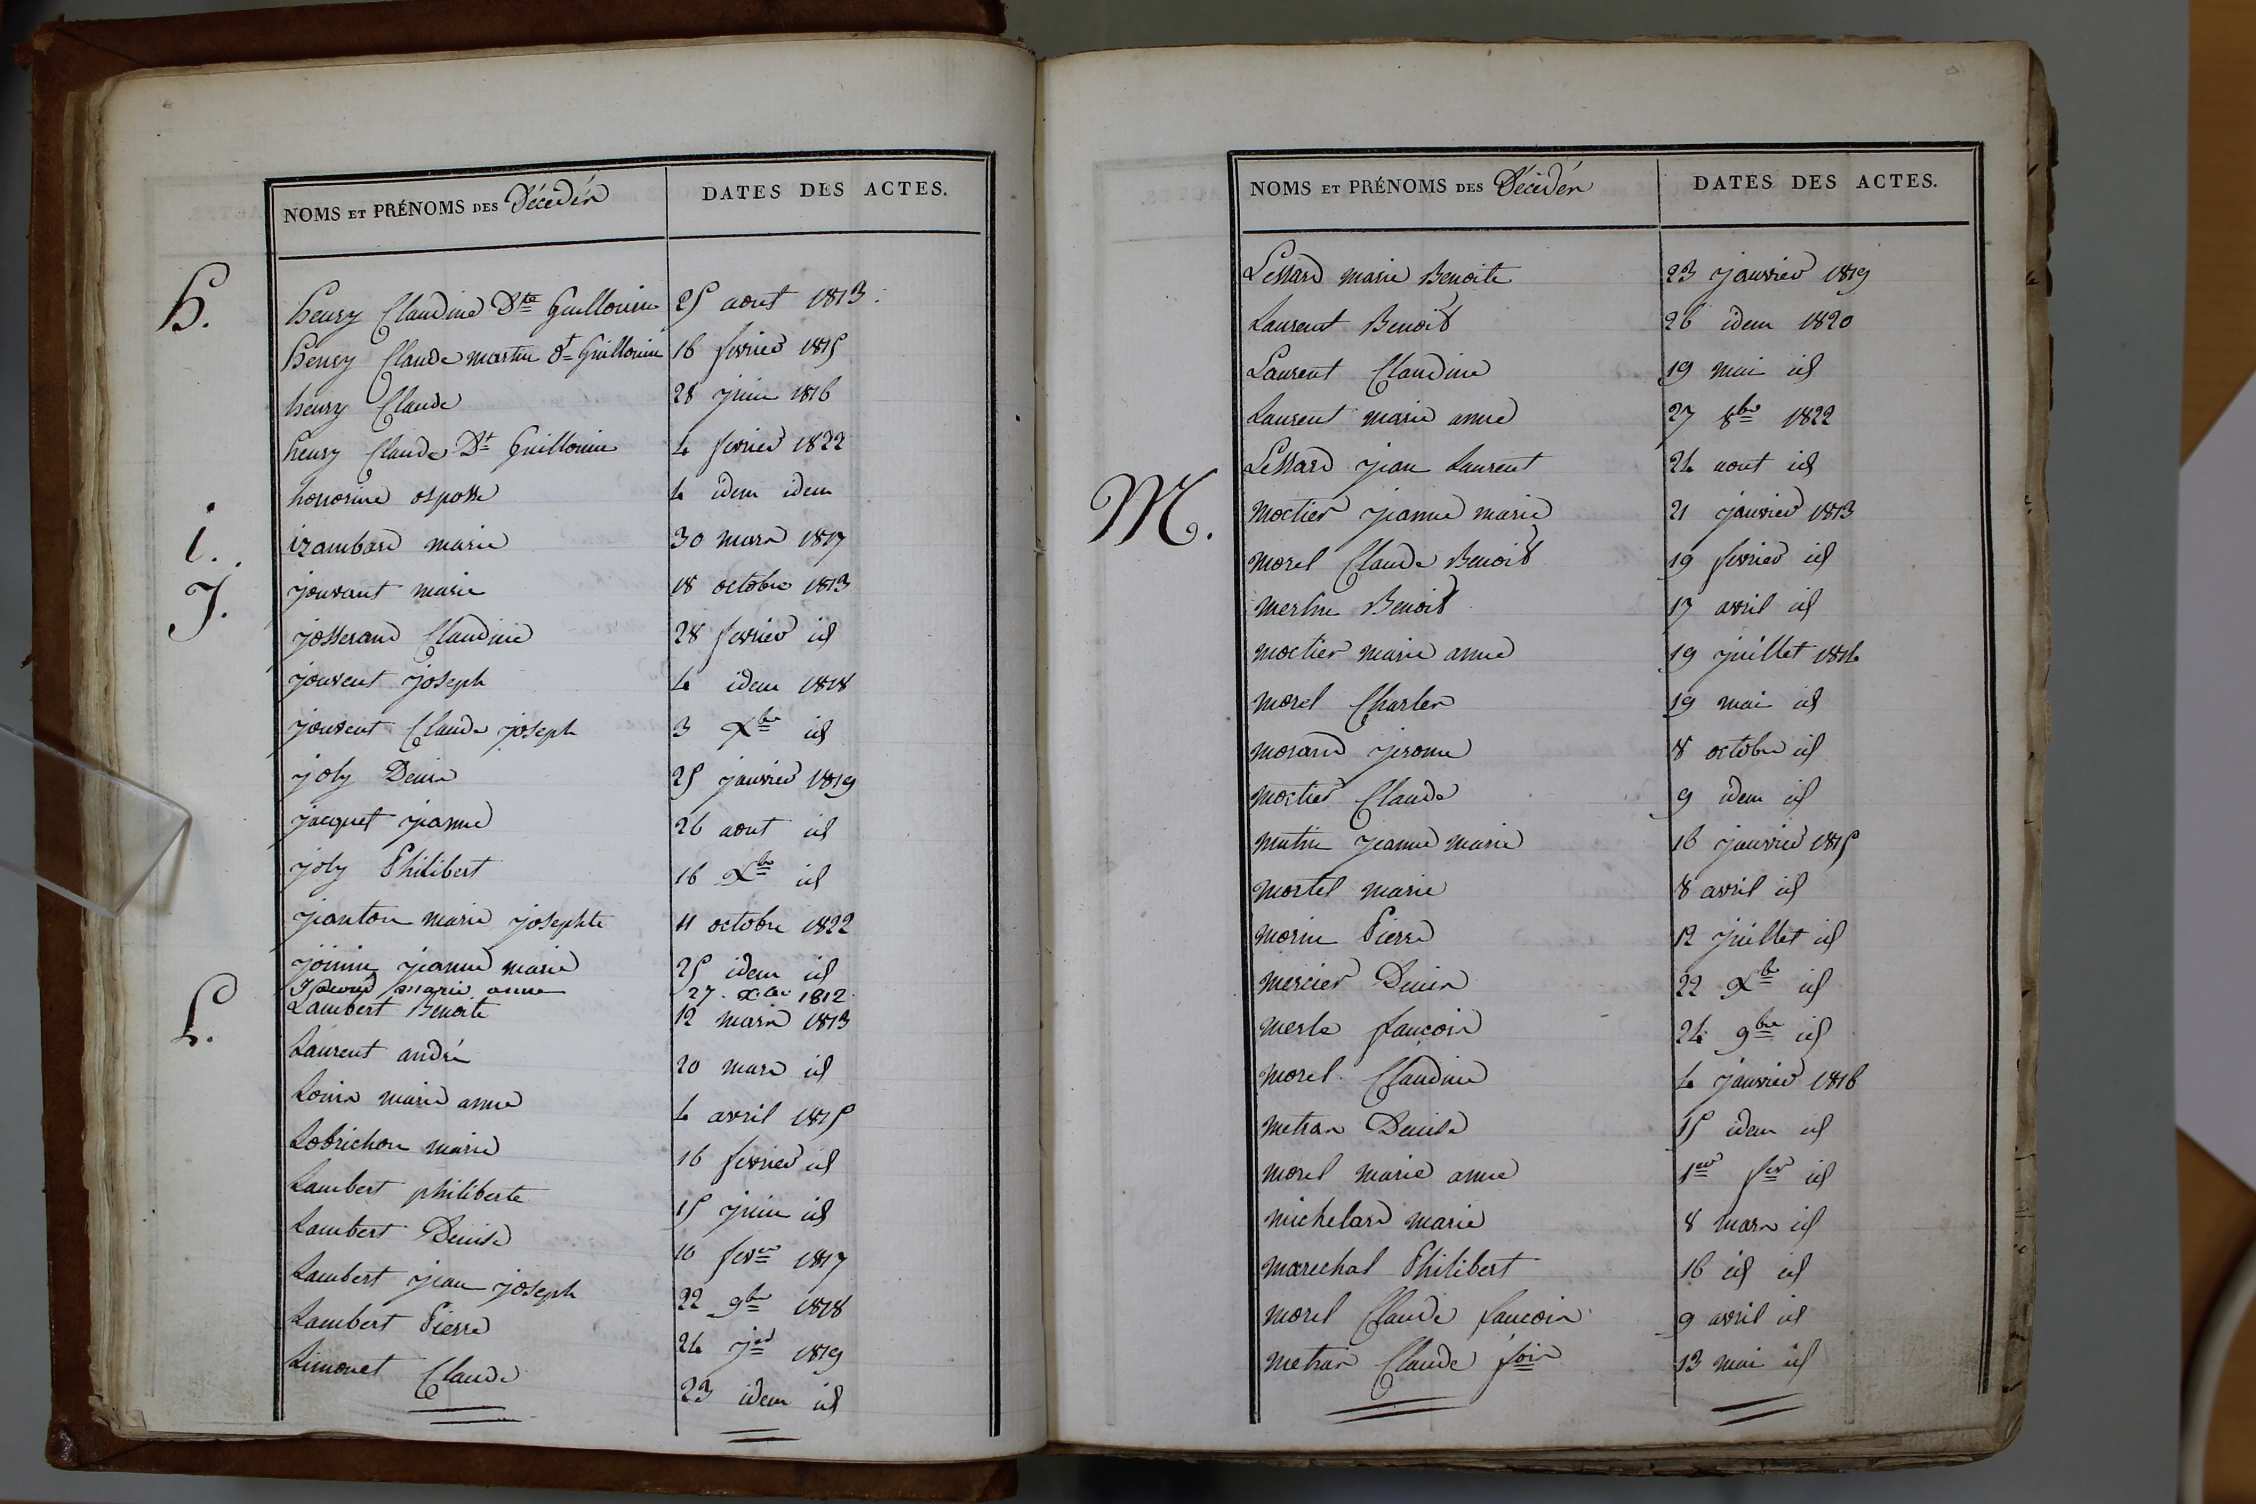 NOMS ET PRÉNOMS DES Décédés DATES DES ACTES.
H. henry Claudine Dte Guillouin 25 aout 1813.
henry Claude martin dt Guillouin 16 fevrier 1815
henry Claude 28 juin 1816
henry Claude Dt Guillouin 4 fevrier 1822
honorine esposse 4 idem idem
i. izambard marie 30 mars 1817
J. jouvant marie 18 octobre 1813
josserand Claudine 28 fevrier id
jouvent joseph 4 idem 1818
jouvent Claude joseph 3 Xbre id
joly Denis 25 janvier 1819
jacquet jeanne 26 aout id
joly Philibert 16 Xbre id
jeanton marie josephte 11 octobre 1822
joinin jeanne marie 25 idem id
marie anne 27. Xbre 1812.
L. Lambert Benoite 12 mars 1813
Laurent andré 20 mars id
Louis marie anne 4 avril 1815
Lobrichon marie 16 fevrier id
Lambert philiberte 15 juin id
Lambert Denise 10 fevr 1817
Lambert jean joseph 22 9bre 1818
Lambert Pierre 24 jer 1819
Limonet Claude 23 idem id
NOMS ET PRÉNOMS DES Décédés DATES DES ACTES.
Lessard marie Benoite 23 janvier 1819
Laurent Benoit 26 idem 1820
Laurent Claudine 19 mai id
Laurent marie anne 27 8bre 1822
Lessard jean Laurent 24 aout id
M. moctier jeanne marie 21 janvier 1813
morel Claude Benoit 19 fevrier id
merlin Benoit 17 avril id
moctier marie anne 19 juillet 1814
morel Charles 19 mai id
morand jerome 8 octobre id
moctier Claude 9 idem id
mutin jeanne marie 16 janvier 1815
mortel marie 8 avril id
morin Pierre 12 juillet id
mercier Denis 22 Xbre id
merle françois 24 9bre id
morel Claudine 4 janvier 1816
metras Denise 15 idem id
morel marie anne 1er fer id
michelard marie 8 mars id
marechal Philibert 16 id id
morel Claude francois 9 avril id
metras Claude fois 13 mai id